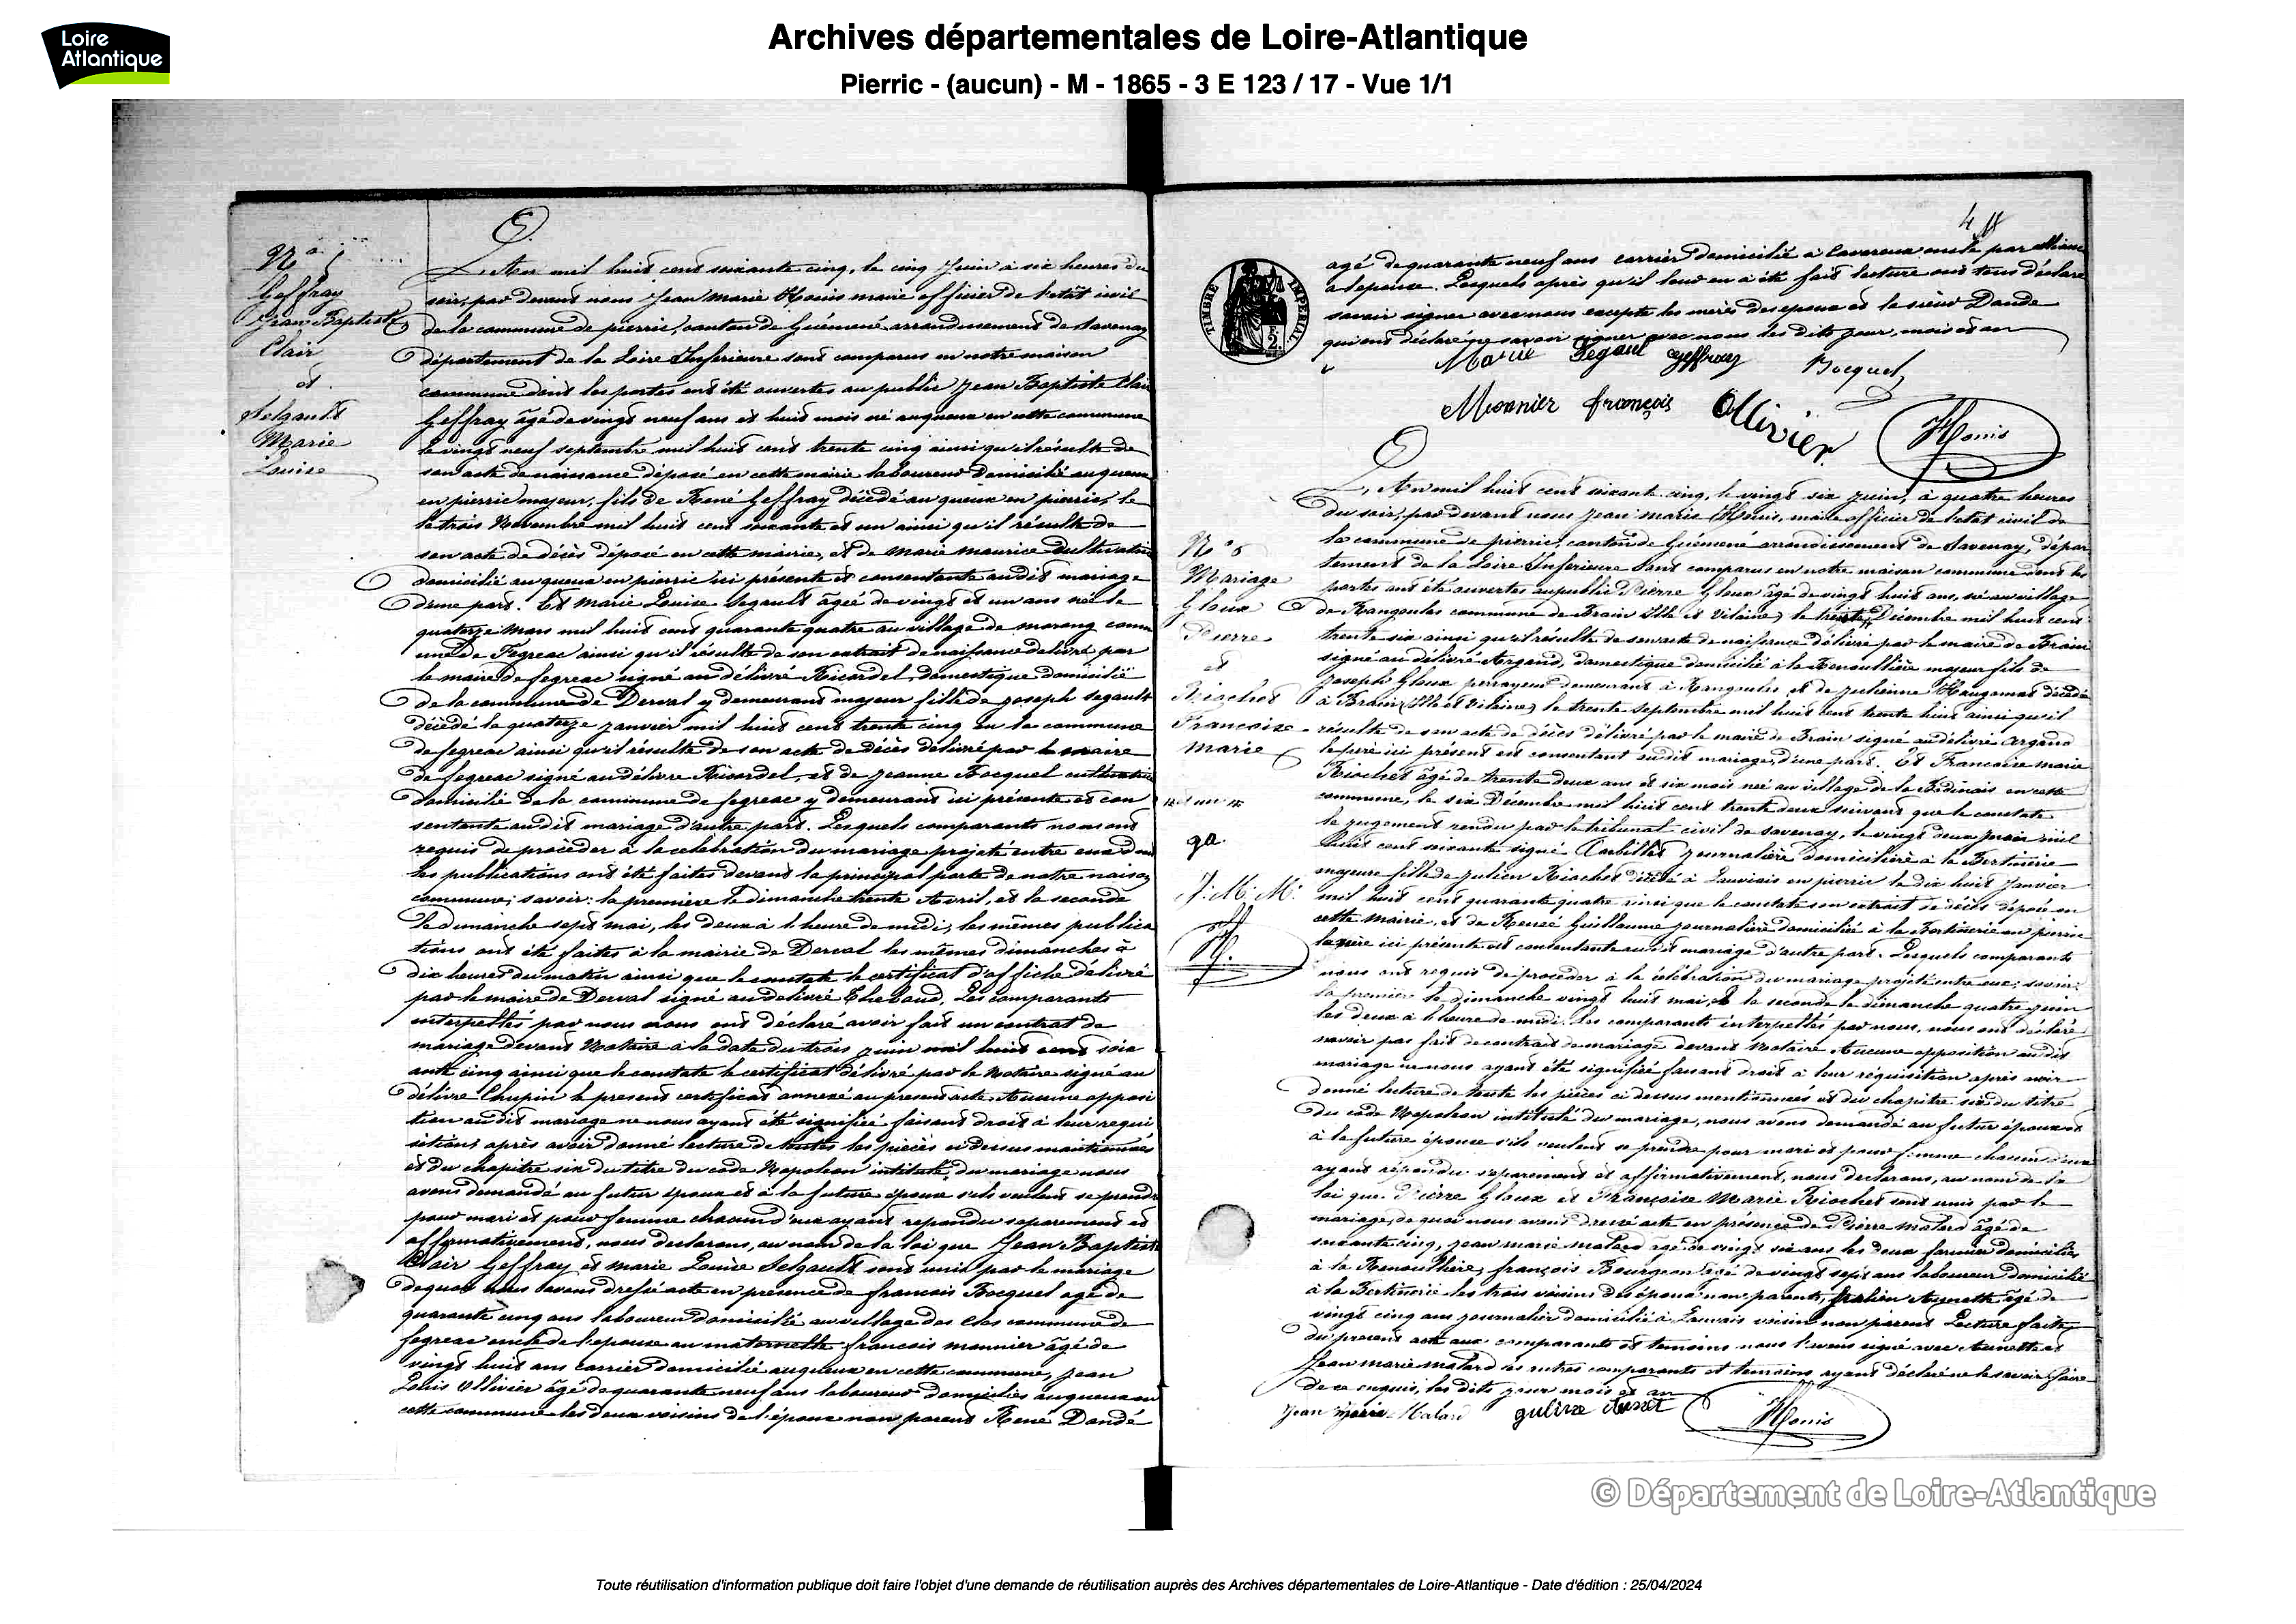 Loire
Atlantique
Archives départementales de Loire-Atlantique
Pierric - (aucun) - M - 1865 - 3 E 123 / 17 - Vue 1/1
N° 5
Geffray
Jean Baptiste
Clair
et
Selgault
Marie
Louise
L'An mil huit cent soixante cinq, le cinq Juin à six heures du
soir, par devant nous Jean Marie Honis maire officier de l'état civil
de la commune de pierric, canton de Guémené arrondissement de Savenay
département de la Loire Inferieure sont comparus en notre maison
commune dont les portes ont été ouvertes au public Jean Baptiste Clair
Geffray âgé de vingt neuf ans et huit mois né auqueux en cette commune
le vingt neuf septembre mil huit cent trente cinq ainsi qu'il résulte de
son acte de naissance déposé en cette mairie laboureur domicilié auqueux
en pierric majeur, fils de René Geffray décédé au queux en pierric, le
le trois Novembre mil huit cent soixante et un ainsi qu'il résulte de
son acte de décès déposé en cette mairie, et de Marie Maurice Cultivatrice
domicilié au queux en pierric ici présente et consentante audit mariage
d'une part. Et Marie Louise Segault âgée de vingt et un ans née le
quatorze Mars mil huit cent quarante quatre au village de morong comm
une de Fegreac ainsi qu'il résulte de son extrait de naissance délivré par
le maire de fegreac signé au délivré Ricordel, domestique domicilié
de la commune de Derval y demeurant majeur fille de joseph Segault
décédé le quatorze janvier mil huit cent trente cinq en la commune
de fegreac ainsi qu'il résulte de son acte de décès délivré par le maire
de fegreac signé au délivré Ricordel, et de Jeanne Bocquel cultivatrice
domicilié de la commune de fegreac y demeurant ici présente et con
sentante audit mariage d'autre part. Lesquels comparants nous ont
requis de procéder à la celebration du mariage projeté entre eux dont
les publications ont été faites devant la principal porte de notre maison
commune; savoir: la premiere le dimanche trente Avril, et la seconde
le dimanche sept mai, les deux à l'heure de midi, les mêmes publica
tions ont été faites à la mairie de Derval les mêmes dimanches à
dix heures du matin ainsi que le constate le certificat d'affiche délivré
par le maire de Derval signé au délivré Thebaud. Les comparants
interpellés par nous nous ont déclaré avoir fait un contrat de
mariage devant Notaire à la date du trois juin mil huit cent soix
ante cinq ainsi que le constate le certificat délivré par le Notaire signé au
délivré Chupin le present certificat annexé au present acte. Aucune opposi
tion audit mariage ne nous ayant été signifiée faisant droit à leur requi
sition; après avoir donné lecture de toutes les pièces ci dessus mentionnées
et du chapitre six du titre du code Napoléon intitulé du mariage nous
avons demandé au futur époux et à la future épouse s'ils veulent se prendre
pour mari et pour femme chacun d'eux ayant repondu séparement et
affirmativement, nous declarons, au nom de la loi que Jean Baptiste
Clair Geffray et Marie Louise Selgault sont unis par le mariage
dequoi nous avons dressé acte en présence de francois Bocquel agé de
quarante cinq ans laboureur domicilié au village des Clos commune de
fegreac oncle de l'epouse au maternelle francois monnier âgé de
vingt huit ans carrier domicilié auqueux en cette commune, Jean
Louis Ollivier âgé de quarante neuf ans laboureur domiciliés auqueux en
cette commune les deux voisins de l'époux non parent René Dandé
4
TIMBRE IMPERIAL
agé de quarante neuf ans carrier domicilié à oncle par alliance
a lepouse. Lesquels après qu'il leur en a été fait lecture ont tous déclaré
savoir signer avec nous excepté les meres des epoux et le sieur Dandé
qui ont déclaré ne savoir signer avec nous les dits jour, mois et an
Marie Segault Geffray Bocquel
Monnier françois Ollivier Honis
N° 6
Mariage
Gloux
Pierre
et
Riochet
Francoise
Marie
et un
ga.
J. M. M.
H.
L'An mil huit cent soixante cinq, le vingt six juin, à quatre heures
du soir, par devant nous Jean marie Honis, maire officier de l'état civil de
la commune de pierric, canton de Guémené arrondissement de Savenay, dépar
tement de la Loire Inferieure sont comparus en notre maison commune dont les
portes ont été ouvertes au public Pierre Gloux âgé de vingt huit ans, né au village
de Rangoulas commune de Brain (Ille et Vilaine) le trente Décembre mil huit cent
trente six ainsi qu'il résulte de son acte de naissance délivré par le maire de Brain
signé au délivré Argand, domestique domicilié à la Renoullière majeur fils de
Joseph Gloux demeurant à Rangoulas et de Julienne décédée
à Brain (Ille et Vilaine) le trente septembre mil huit cent trente huit ainsi qu'il
résulte de son acte de décès délivré par le maire de Brain signé au délivré Argand
le père ici présent et consentant audit mariage, d'une part. Et Francoise marie
Riochet âgé de trente deux ans et six mois né au village de la Bodinais en cette
commune, le six Décembre mil huit cent trente deux suivant que le constate
le jugement rendu par le tribunal civil de Savenay, le vingt deux juin mil
huit cent soixante signé journalière domicilière à la Bertinerie
majeure fille de Julien Riochet décédé à Lauviais en pierric le dix huit Janvier
mil huit cent quarante quatre ainsi que le constate son extrait de décès déposé en
cette mairie, et de Renée Guillaume journalière domiciliée à la Bertinerie en pierric
la mère ici présente et consentante audit mariage d'autre part. Lesquels comparants
nous ont requis de procéder à la célébration du mariage projeté entre eux; savoir:
la premiere le dimanche vingt huit mai, et la seconde le dimanche quatre juin
les deux à l'heure de midi. Les comparants interpellés par nous, nous ont déclaré
n'avoir pas fait de contrat de mariage devant Notaire. Aucune opposition audit
mariage ne nous ayant été signifiée faisant droit à leur réquisition après avoir
donné lecture de toute les pièces ci dessus mentionnées et du chapitre six du titre
du code Napoléon intitulé du mariage, nous avons demandé au futur époux et
à la future épouse s'ils veulent se prendre pour mari et pour femme chacun d'eux
ayant répondu séparement et affirmativement, nous declarons, au nom de la
loi que Pierre Gloux et Françoise Marie Riochet sont unis par le
mariage, de quoi nous avons dressé acte en présence de Pierre Malard âgé de
soixante cinq, Jean marie Malard âgé de vingt six ans les deux fermier domiciliés
à la Renoullière, françois Bourgeon âgé de vingt sept ans laboureur domicilié
à la Bertinerie les trois voisins des époux non parents, Julien Aunette âgé de
vingt cinq ans journalier domicilié à Lauviais voisin non parent. Lecture faite
du present acte aux comparants et temoins nous l'avons signé avec Aunette et
Jean marie malard les autres comparants et temoins ayant déclaré ne le savoir faire
de ce requis, les dits jour mois et an
Jean Marie Malard Honis
© Département de Loire-Atlantique
Toute réutilisation d'information publique doit faire l'objet d'une demande de réutilisation auprès des Archives départementales de Loire-Atlantique - Date d'édition : 25/04/2024